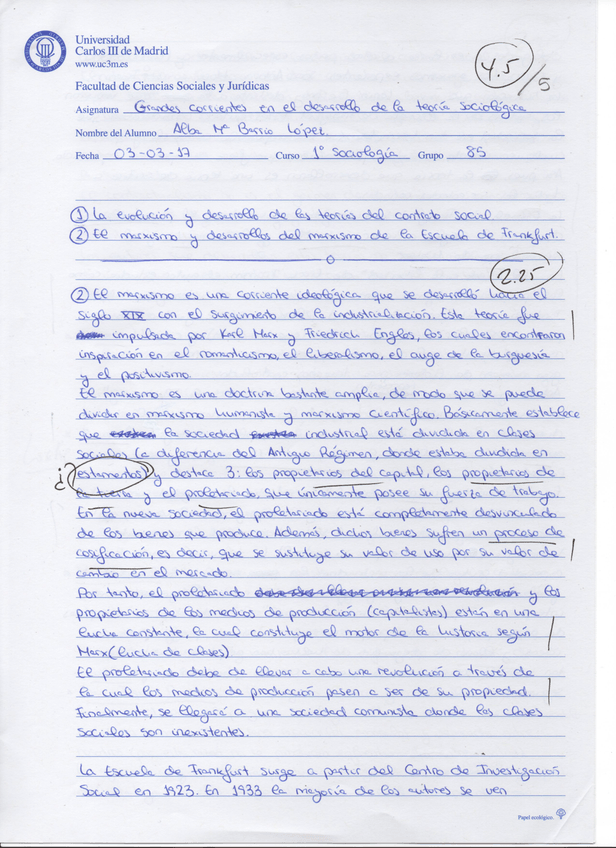 Universidad
Carlos III de Madrid
www.uc3m.es
4.5/5
Facultad de Ciencias Sociales y Jurídicas
Asignatura Grandes corrientes en el desarrollo de la teoría sociológica
Nombre del Alumno Alba Mª Barrio López
Fecha 03-03-17 Curso 1º Sociología Grupo 85
① La evolución y desarrollo de las teorías del contrato social
② El marxismo y desarrollos del marxismo de la Escuela de Frankfurt.
2.25
② El marxismo es una corriente ideológica que se desarrolló hacia el
siglo XIX con el surgimiento de la industrialización. Esta teoría fue
impulsada por Karl Marx y Friedrich Engles, los cuales encontraron
inspiración en el romanticismo, el liberalismo, el auge de la burguesía
y el positivismo.
El marxismo es una doctrina bastante amplia, de modo que se puede
dividir en marxismo humanista y marxismo científico. Básicamente establece
que la sociedad industrial está dividida en clases
sociales (a diferencia del Antiguo Régimen, donde estaba dividida en
¿? estamentos) y destaca 3: los propietarios del capital, los propietarios de
la tierra y el proletariado, que únicamente posee su fuerza de trabajo.
En la nueva sociedad, el proletariado está completamente desvinculado
de los bienes que produce. Además, dichos bienes sufren un proceso de
cosificación, es decir, que se sustituye su valor de uso por su valor de
cambio en el mercado.
Por tanto, el proletariado y los
propietarios de los medios de producción (capitalistas) están en una
lucha constante, la cual constituye el motor de la historia según
Marx (lucha de clases)
El proletariado debe de llevar a cabo una revolución a través de
la cual los medios de producción pasen a ser de su propiedad.
Finalmente, se llegará a una sociedad comunista donde las clases
sociales son inexistentes.
La Escuela de Frankfurt surge a partir del Centro de Investigación
Social en 1923. En 1933 la mayoría de los autores se ven
Papel ecológico.